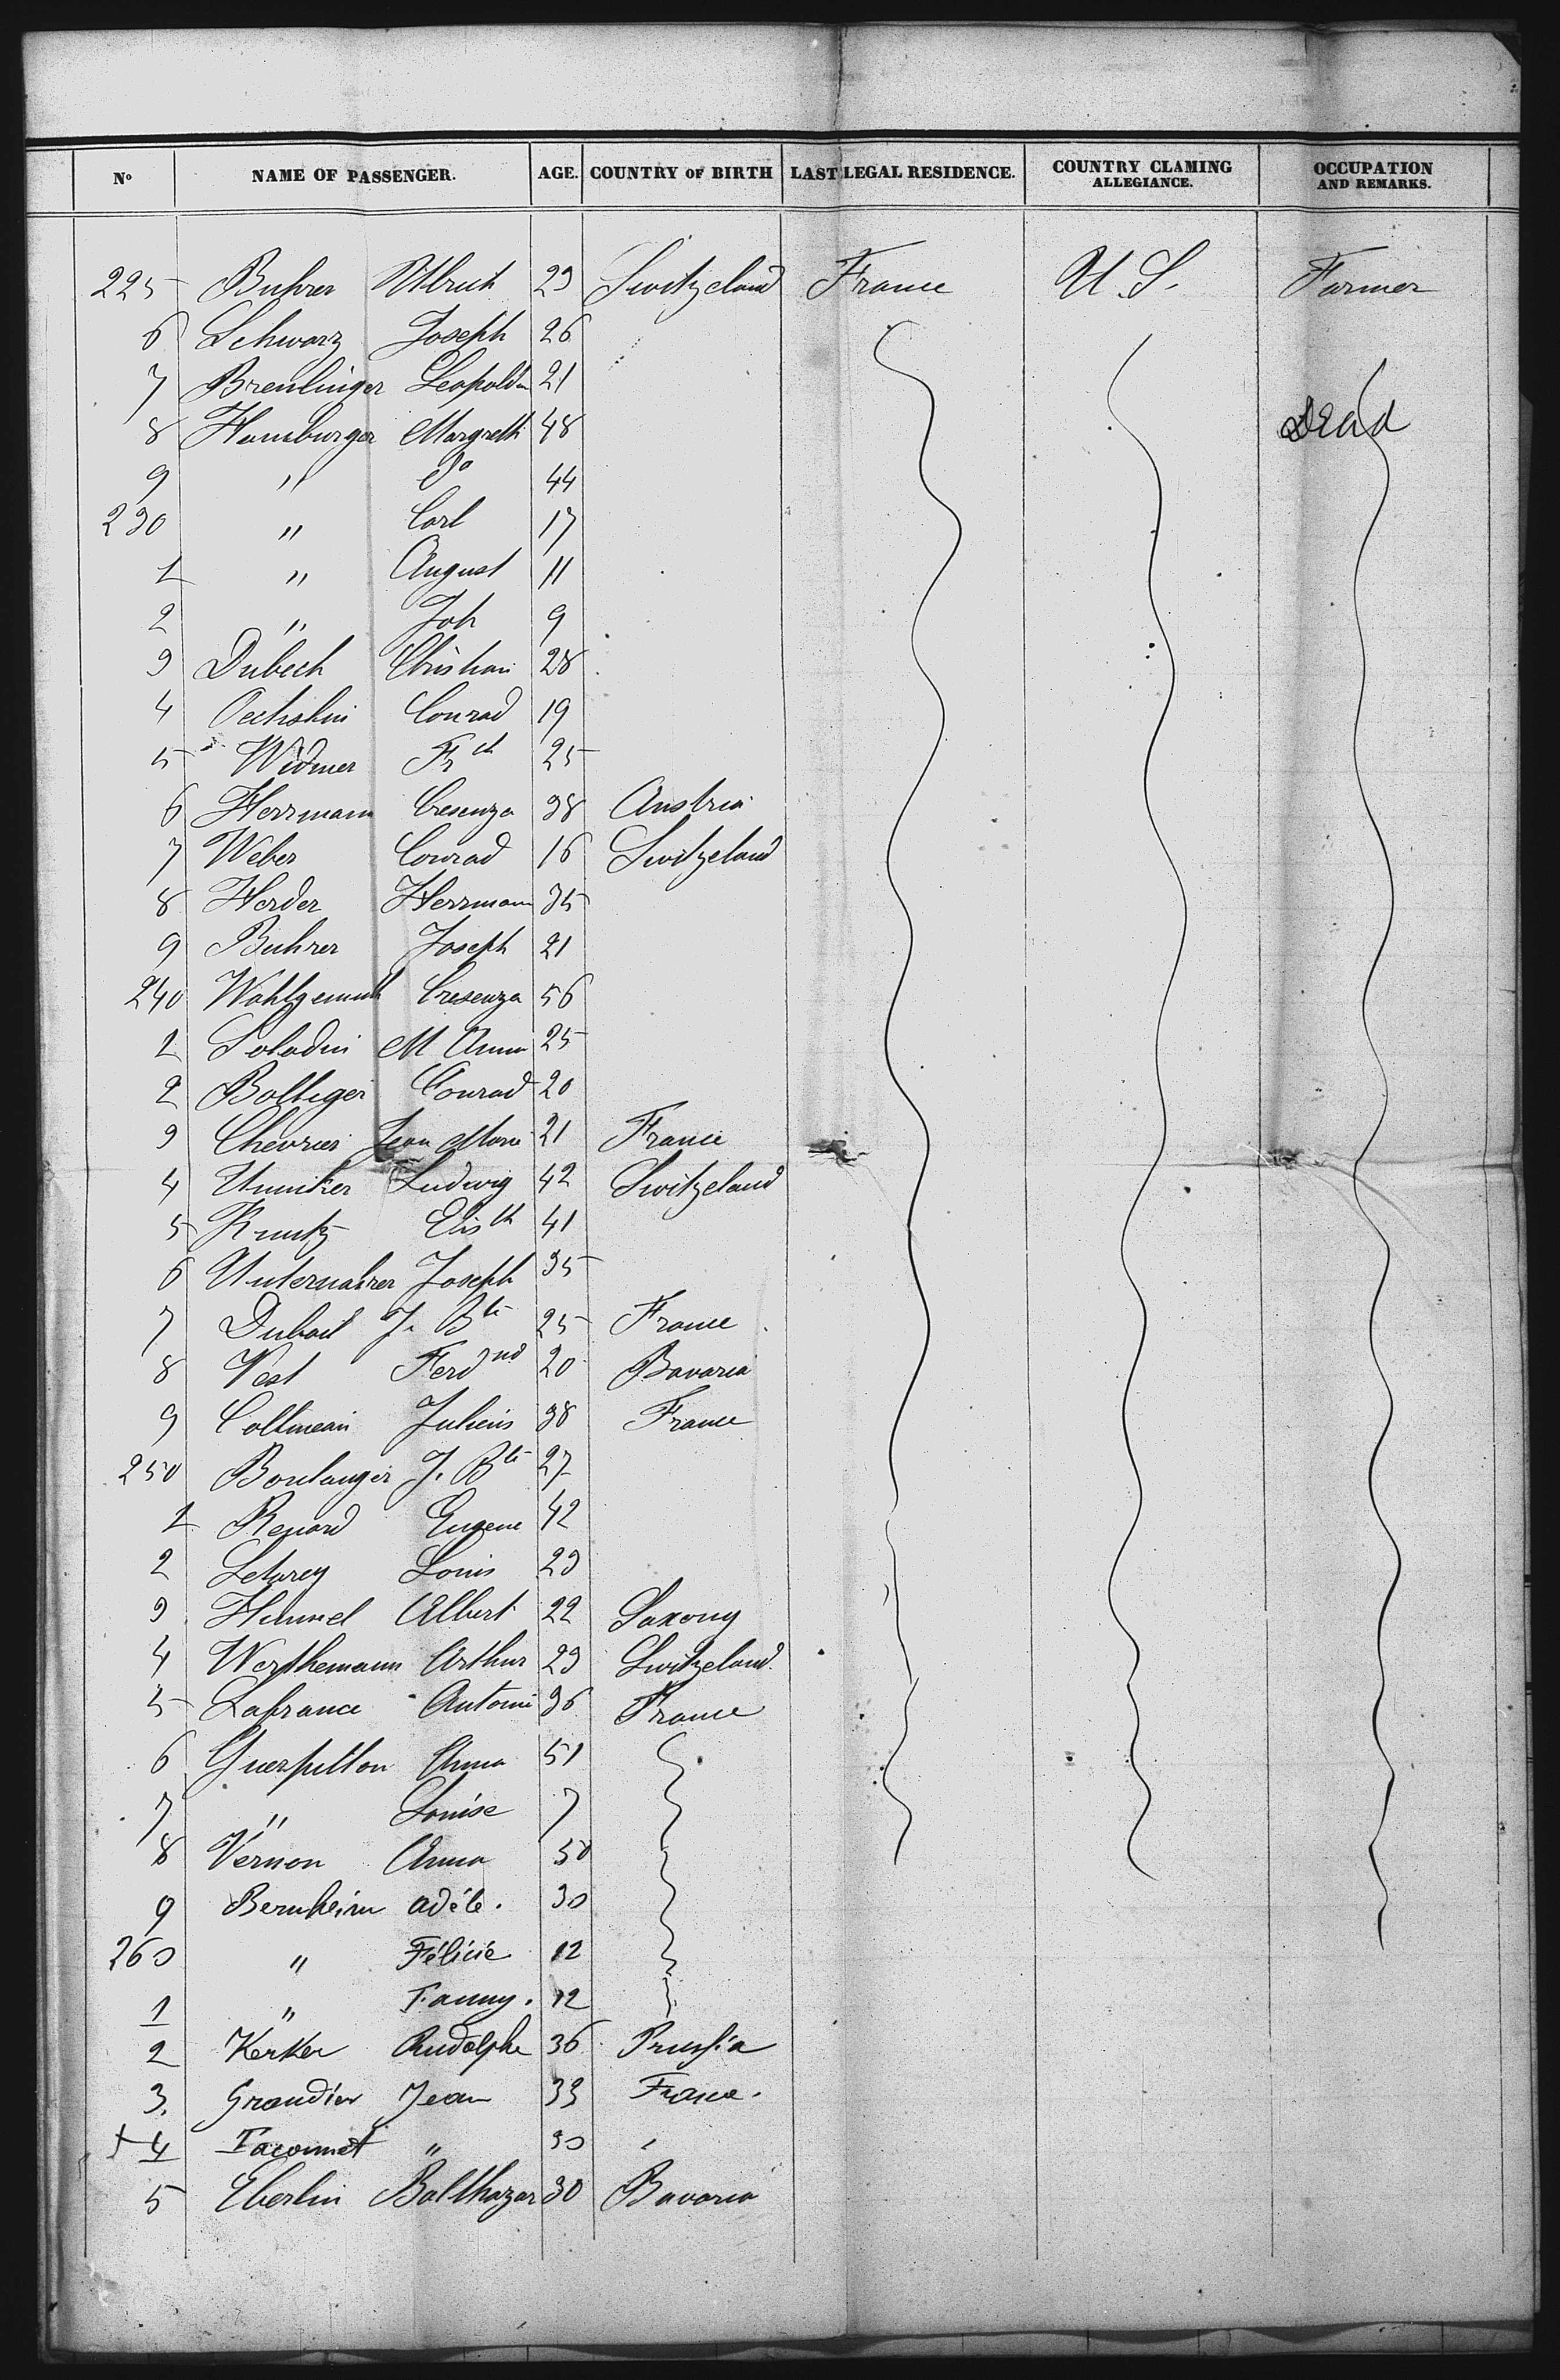 Nº NAME OF PASSENGER. AGE. COUNTRY OF BIRTH LAST LEGAL RESIDENCE. COUNTRY CLAMING ALLEGIANCE. OCCUPATION AND REMARKS.
225 Buhrer Ulrich 23 Switzeland France U.S. Farmer
6 Schwarz Joseph 26
7 Breulinger Leopoldin 21
8 Hamburger Margreth 48 Dead
9 " do 44
230 " Carl 17
1 " August 11
2 " Joh 9
3 Dubech Christian 28
4 Oechslin Conrad 19
5 Widmer Frch 25
6 Herrmann Cresenza 38 Austria
7 Weber Conrad 16 Switzeland
8 Herder Herrmann 35
9 Buhrer Joseph 21
240 Wohlgemuth Cresenza 56
1 Soladin M Anna 25
2 Bolliger Conrad 20
3 Chevrier Jean Marie 21 France
4 Umiker Ludwig 42 Switzeland
5 Kuntz Elisth 41
6 Unternahrer Joseph 35
7 Dubail J. Bte 25 France
8 Vest Ferdnd 20 Bavaria
9 Julius 38 France
250 Boulanger J. Bte 27
1 Renard Eugene 42
2 Louis 23
3 Himmel Albert 22 Saxony
4 Werthemann Arthur 23 Switzeland
5 Lafrance Antoine 36 France
6 Guerpillon Anna 51
7 " Louise 7
8 Vernon Anna 50
9 Bernheim adèle. 30
260 " Félicie 12
1 " Fanny. 12
2 Kerker Rudolphe 36 Prussia
3. Grandier Jean 33 France.
+ 4 Faconnet " 30 "
5 Eberlin Balthazar 30 Bavaria